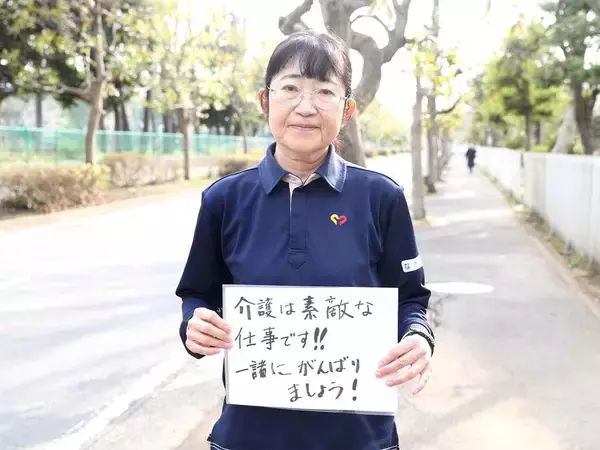 介護は素敵な
仕事です!!
一諸に がんばり
ましょう!